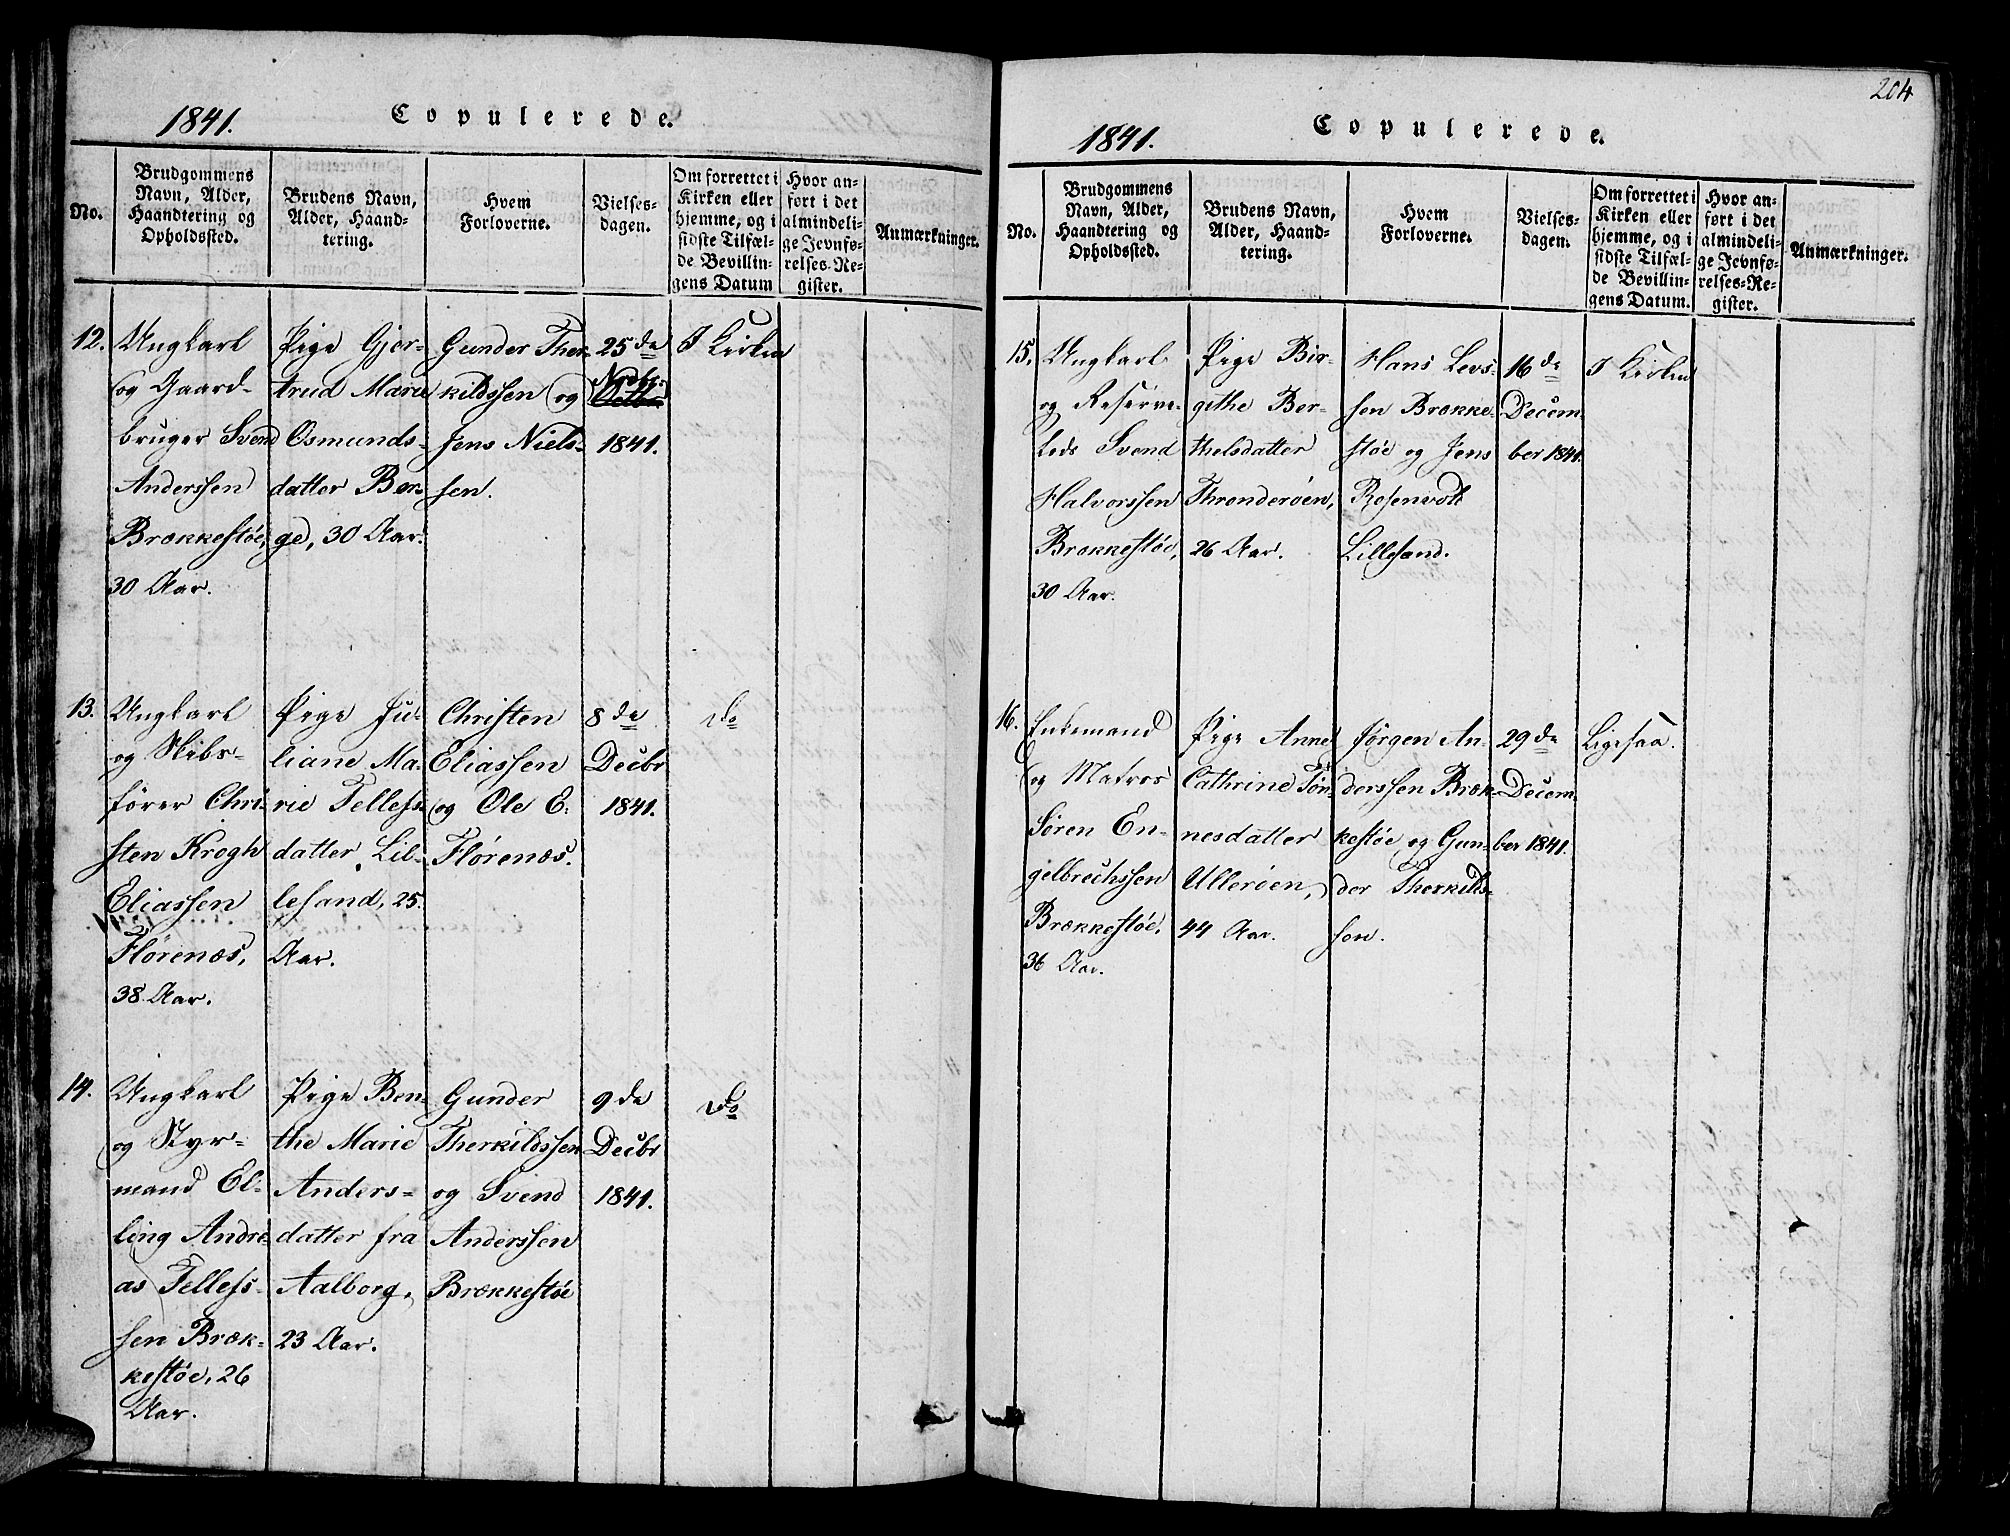 1841. Copulerede.
No.
Brudgommens
Navn, Alder,
Haandtering og
Opholdssted.
Brudens Navn,
Alder, Haand-
tering.
Hvem
Forloverne.
Vielses-
dagen.
Om forrettet i
Kirken eller
hjemme, og i
sidste Tilfæl-
de Bevillin-
gens Datum
Hvor an-
ført i det
almindeli-
ge Jevnfø-
relses-Re-
gister.
Anmærkninger.
12.
Ungkarl
og Gaard-
bruger Svend
Anderssen
Brækkestøe,
30 Aar.
Pige Gjer-
trud Marie
Osmunds-
datter Bør-
ge, 30 Aar.
Gunder Ther-
kildssen og
Jens Niels-
sen.
25de
Novbr.
Octbr
1841.
I Kirken
13.
Ungkarl
og Skibs-
fører Chri-
sten Krogh
Eliassen
Flørenæs,
38 Aar.
Pige Ju-
liane Ma-
rie Tellefs-
datter, Lil-
lesand, 25
Aar.
Christen
Eliassen
og Ole E.
Flørenæs.
8de
Decbr
1841.
Do
14.
Ungkarl
og Styr-
mand El-
ling Andre-
as Tellefs-
sen Bræk-
kestøe, 26
Aar.
Pige Ben-
the Marie
Anders-
datter fra
Aalborg,
23 Aar.
Gunder
Therkildssen
og Svend
Anderssen
Brækkestøe
9de
Decbr
1841.
Do
204
1841. Copulerede.
No.
Brudgommens
Navn, Alder,
Haandtering og
Opholdssted.
Brudens Navn,
Alder, Haand-
tering.
Hvem
Forloverne.
Vielses-
dagen.
Om forrettet i
Kirken eller
hjemme, og i
sidste Tilfæl-
de Bevillin-
gens Datum.
Hvor an-
ført i det
almindeli-
ge Jevnfø-
relses-Re-
gister.
Anmærkninger.
15.
Ungkarl
og Reserve-
Lods Svend
Halvorssen
Brækkestøe,
30 Aar.
Pige Bir-
githe Ber-
thelsdatter
Thronderøen,
26 Aar.
Hans Levs-
sen Brække-
støe og Jens
Rosenvold
Lillesand.
16de
Decem-
ber 1841.
I Kirken
16.
Enkemand
og Matros
Søren En-
gelbrechssen
Brækkestøe,
36 Aar.
Pige Anne
Cathrine Tøn-
nesdatter
Ulleröen,
44 Aar.
Jørgen An-
derssen Bræk-
kestøe og Gun-
der Therkilds-
sen.
29de
Decem-
ber 1841.
Ligesaa.